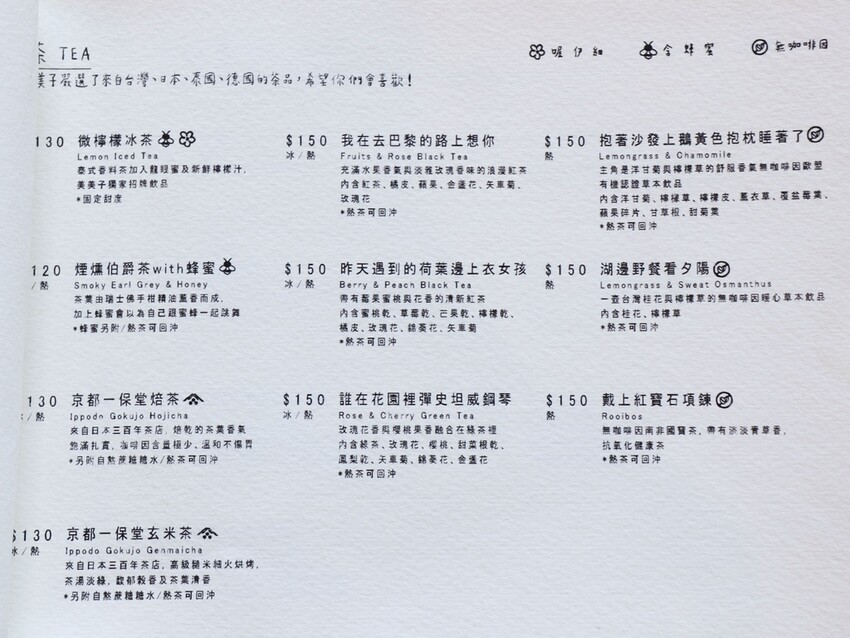 茶 TEA
美子嚴選了來自台灣、日本、泰國、德國的茶品，希望你們會喜歡！
喔伊細 含蜂蜜 無咖啡因
130 微檸檬冰茶
Lemon Iced Tea
泰式香料茶加入龍眼蜜及新鮮檸檬汁，
美美子獨家招牌飲品
*固定甜度
120 煙燻伯爵茶with蜂蜜
/熱 Smoky Earl Grey & Honey
茶葉由瑞士佛手柑精油薰香而成，
加上蜂蜜會以為自己跟蜜蜂一起跳舞
*蜂蜜另附/熱茶可回沖
130 京都一保堂焙茶
/熱 Ippodo Gokujo Hojicha
來自日本三百年茶店，焙乾的茶葉香氣
飽滿扎實，咖啡因含量極少，溫和不傷胃
*另附自熬蔗糖糖水/熱茶可回沖
$130 京都一保堂玄米茶
冰/熱 Ippodo Gokujo Genmaicha
來自日本三百年茶店，高級糙米細火烘烤，
茶湯淡綠，馥郁穀香及茶葉清香
*另附自熬蔗糖糖水/熱茶可回沖
$150 我在去巴黎的路上想你
冰/熱 Fruits & Rose Black Tea
充滿水果香氣與淡雅玫瑰香味的浪漫紅茶
內含紅茶、橘皮、蘋果、金盞花、矢車菊、
玫瑰花
*熱茶可回沖
$150 昨天遇到的荷葉邊上衣女孩
冰/熱 Berry & Peach Black Tea
帶有莓果蜜桃與花香的清新紅茶
內含蜜桃乾、草莓乾、芒果乾、檸檬乾、
橘皮、玫瑰花、錦葵花、矢車菊
*熱茶可回沖
$150 誰在花園裡彈史坦威鋼琴
冰/熱 Rose & Cherry Green Tea
玫瑰花香與櫻桃果香融合在綠茶裡
內含綠茶、玫瑰花、櫻桃、甜菜根乾、
鳳梨乾、矢車菊、錦葵花、金盞花
*熱茶可回沖
$150 抱著沙發上鵝黃色抱枕睡著了
熱 Lemongrass & Chamomile
主角是洋甘菊與檸檬草的舒服香氣無咖啡因歐盟
有機認證草本飲品
內含洋甘菊、檸檬草、檸檬皮、薰衣草、覆盆莓葉、
蘋果碎片、甘草根、甜菊葉
*熱茶可回沖
$150 湖邊野餐看夕陽
熱 Lemongrass & Sweat Osmanthus
一壺台灣桂花與檸檬草的無咖啡因暖心草本飲品
內含桂花、檸檬草
*熱茶可回沖
$150 戴上紅寶石項鍊
熱 Rooibos
無咖啡因南非國寶茶，帶有淡淡青草香，
抗氧化健康茶
*熱茶可回沖